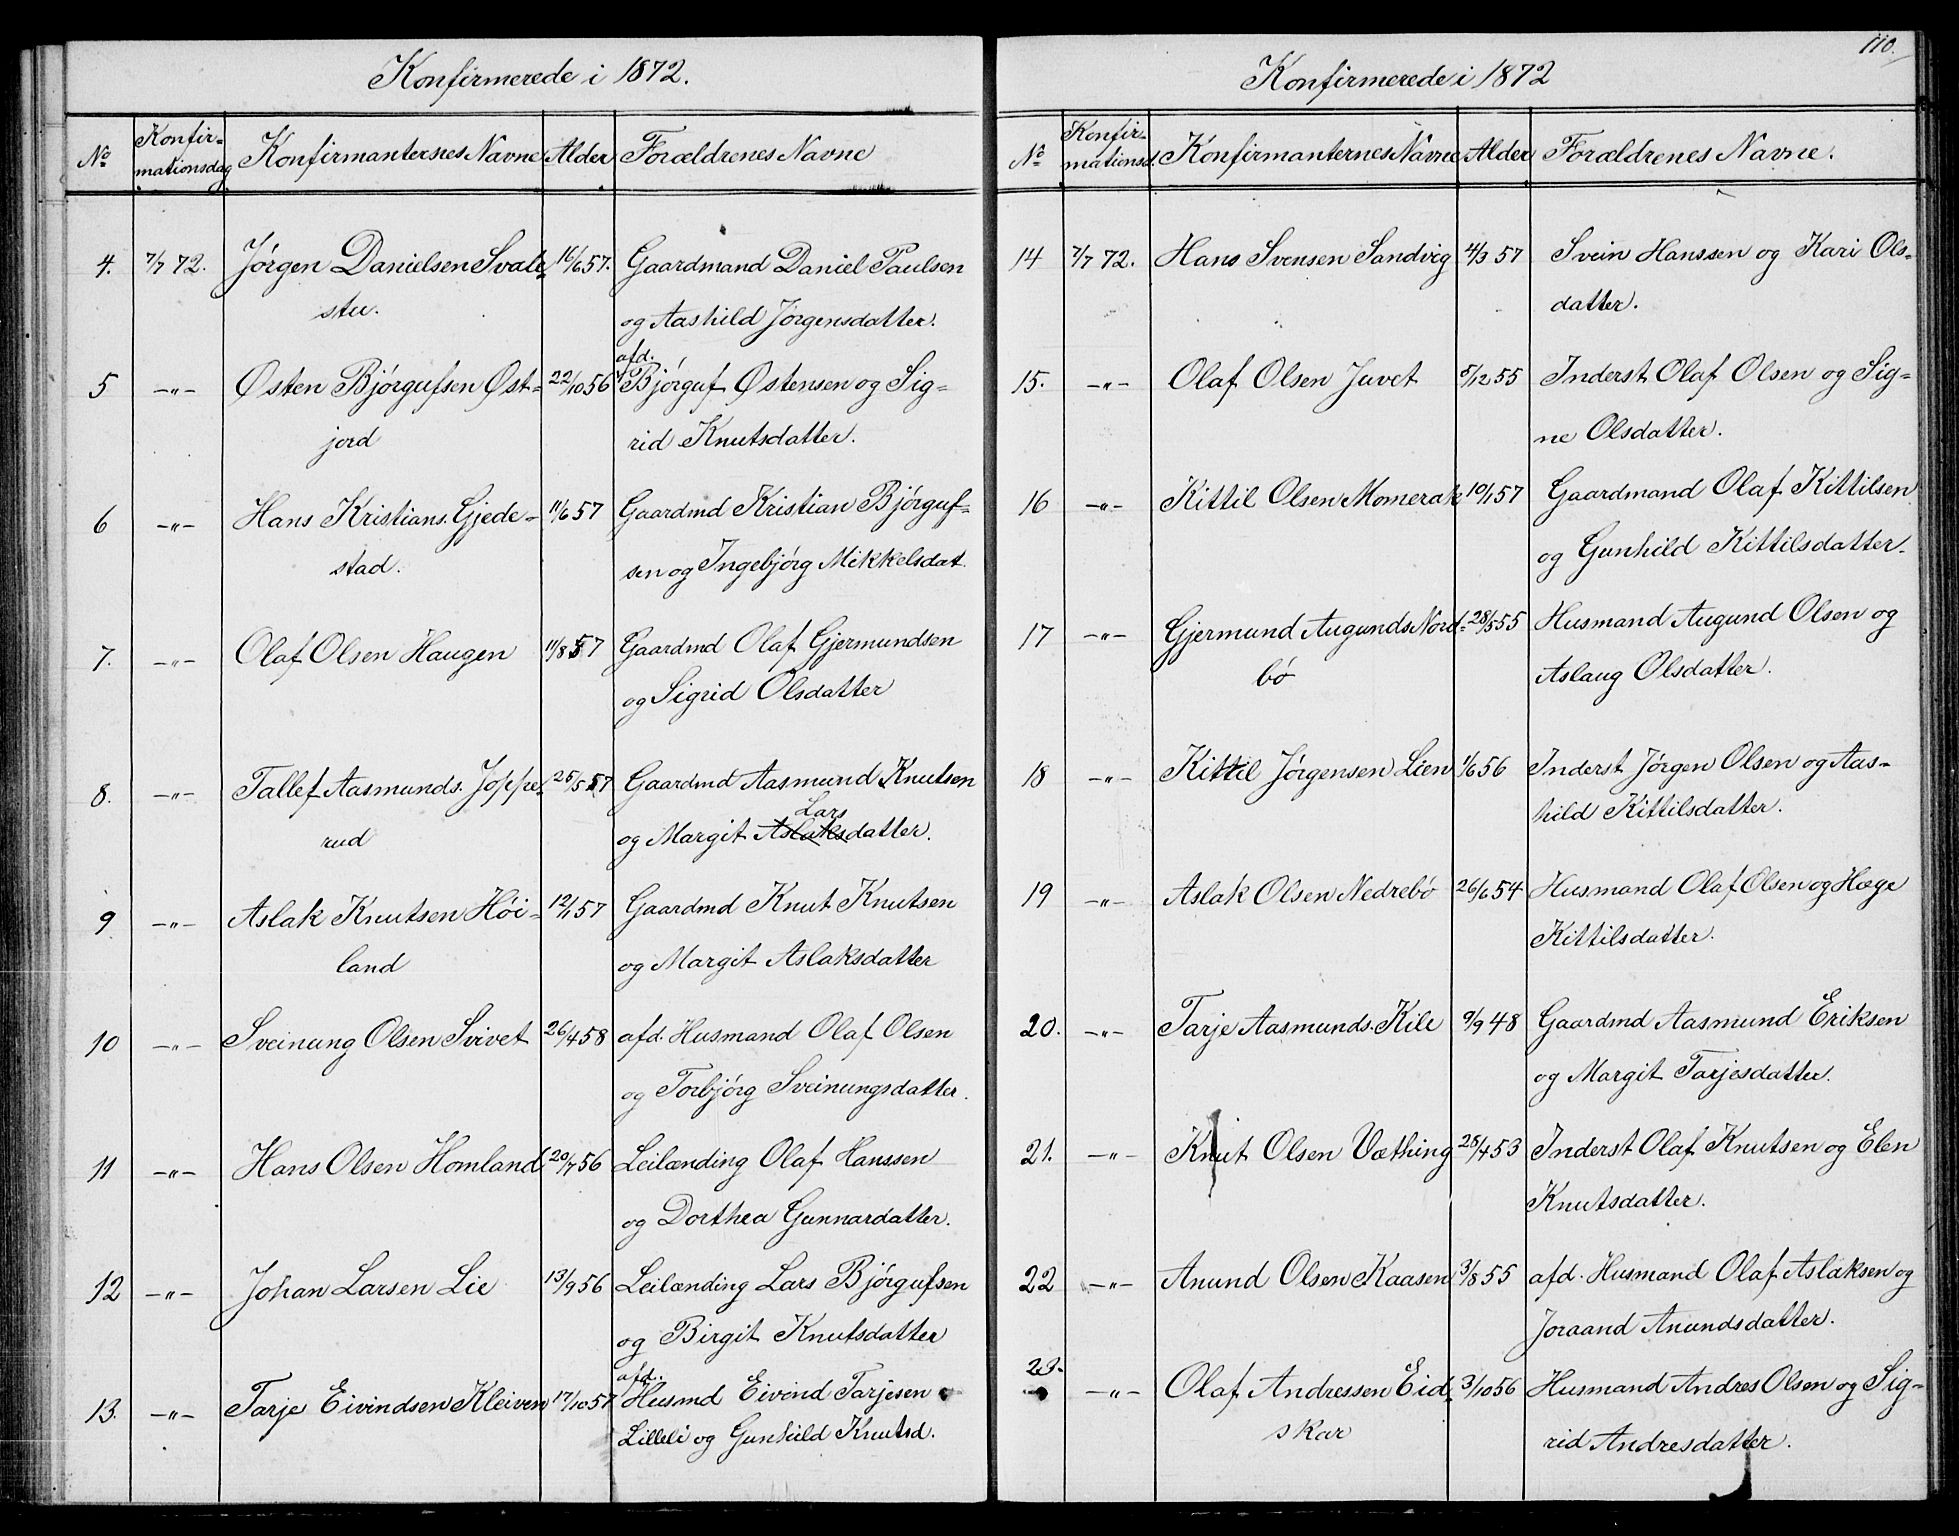 Konfirmerede i 1872.
No Konfir-mationsdag Konfirmanternes Navne Alder Forældrenes Navne
4. 7/7 72. Jørgen Danielsen Svale- 16/6 57. Gaardmand Daniel Paulsen
stu. og Aashild Jørgensdatter.
afd.
5 -"- Østen Bjørgufsen Øst- 22/10 56 Bjørguf Østensen og Sig-
jord rid Knutsdatter.
6 -"- Hans Kristians. Gjede- 11/6 57 Gaardmd Kristian Bjørguf-
stad. sen og Ingebjørg Mikkelsdat.
7. -"- Olaf Olsen Haugen 11/8 57 Gaardmd Olaf Gjermundsen
og Sigrid Olsdatter
8. -"- Tallef Aasmunds. Joppe- 25/5 57 Gaardmd Aasmund Knutsen
Lars
rud og Margit Aslaksdatter.
9 -"- Aslak Knutsen Høi- 12/1 57 Gaardmd Knut Knutsen
land og Margit Aslaksdatter
10 -"- Sveinung Olsen Svivet 26/4 58 afd. Husmand Olaf Olsen
og Torbjørg Sveinungsdatter.
11 -"- Hans Olsen Homland 20/7 56 Leilænding Olaf Hanssen
og Dorthea Gunnardatter.
12 -"- Johan Larsen Lie 13/9 56 Leilænding Lars Bjørgufsen
og Birgit Knutsdatter
afd.
13. -"- Tarje Eivindsen Kleiven 17/10 57 Husmd Eivind Tarjesen
Lilleli og Gunhild Knutsd.
110.
Konfirmerede i 1872
No Konfir-mationsd. Konfirmanternes Navne Alder Forældrenes Navne.
14 7/7 72. Hans Svensen Sandvig 4/3 57 Svein Hanssen og Kari Ols-
datter.
15. -"- Olaf Olsen Juvet 5/12 55 Inderst Olaf Olsen og Sig-
ne Olsdatter.
16 -"- Kittil Olsen Momerak 10/1 57 Gaardmand Olaf Kittilsen
og Gunhild Kittilsdatter.
17 -"- Gjermund Augunds Nord- 28/5 55 Husmand Augund Olsen og
bø Aslaug Olsdatter.
18 -"- Kittil Jørgensen Lien 1/6 56 Inderst Jørgen Olsen og Aas-
hild Kittilsdatter.
19 -"- Aslak Olsen Nedrebø 26/6 54 Husmand Olaf Olsen og Hæge
Kittilsdatter.
20. -"- Tarje Aasmunds. Kile 9/9 48 Gaardmd Aasmund Eriksen
og Margit Tarjesdatter.
21. -"- Knut Olsen Væthing 25/4 53 Inderst Olaf Knutsen og Elen
Knutsdatter.
22 -"- Anund Olsen Kaasen 3/8 55 afd. Husmand Olaf Aslaksen og
Joraand Anundsdatter.
23. -"- Olaf Andressen Eid- 3/10 56 Husmand Andres Olsen og Sig-
skar rid Andresdatter.